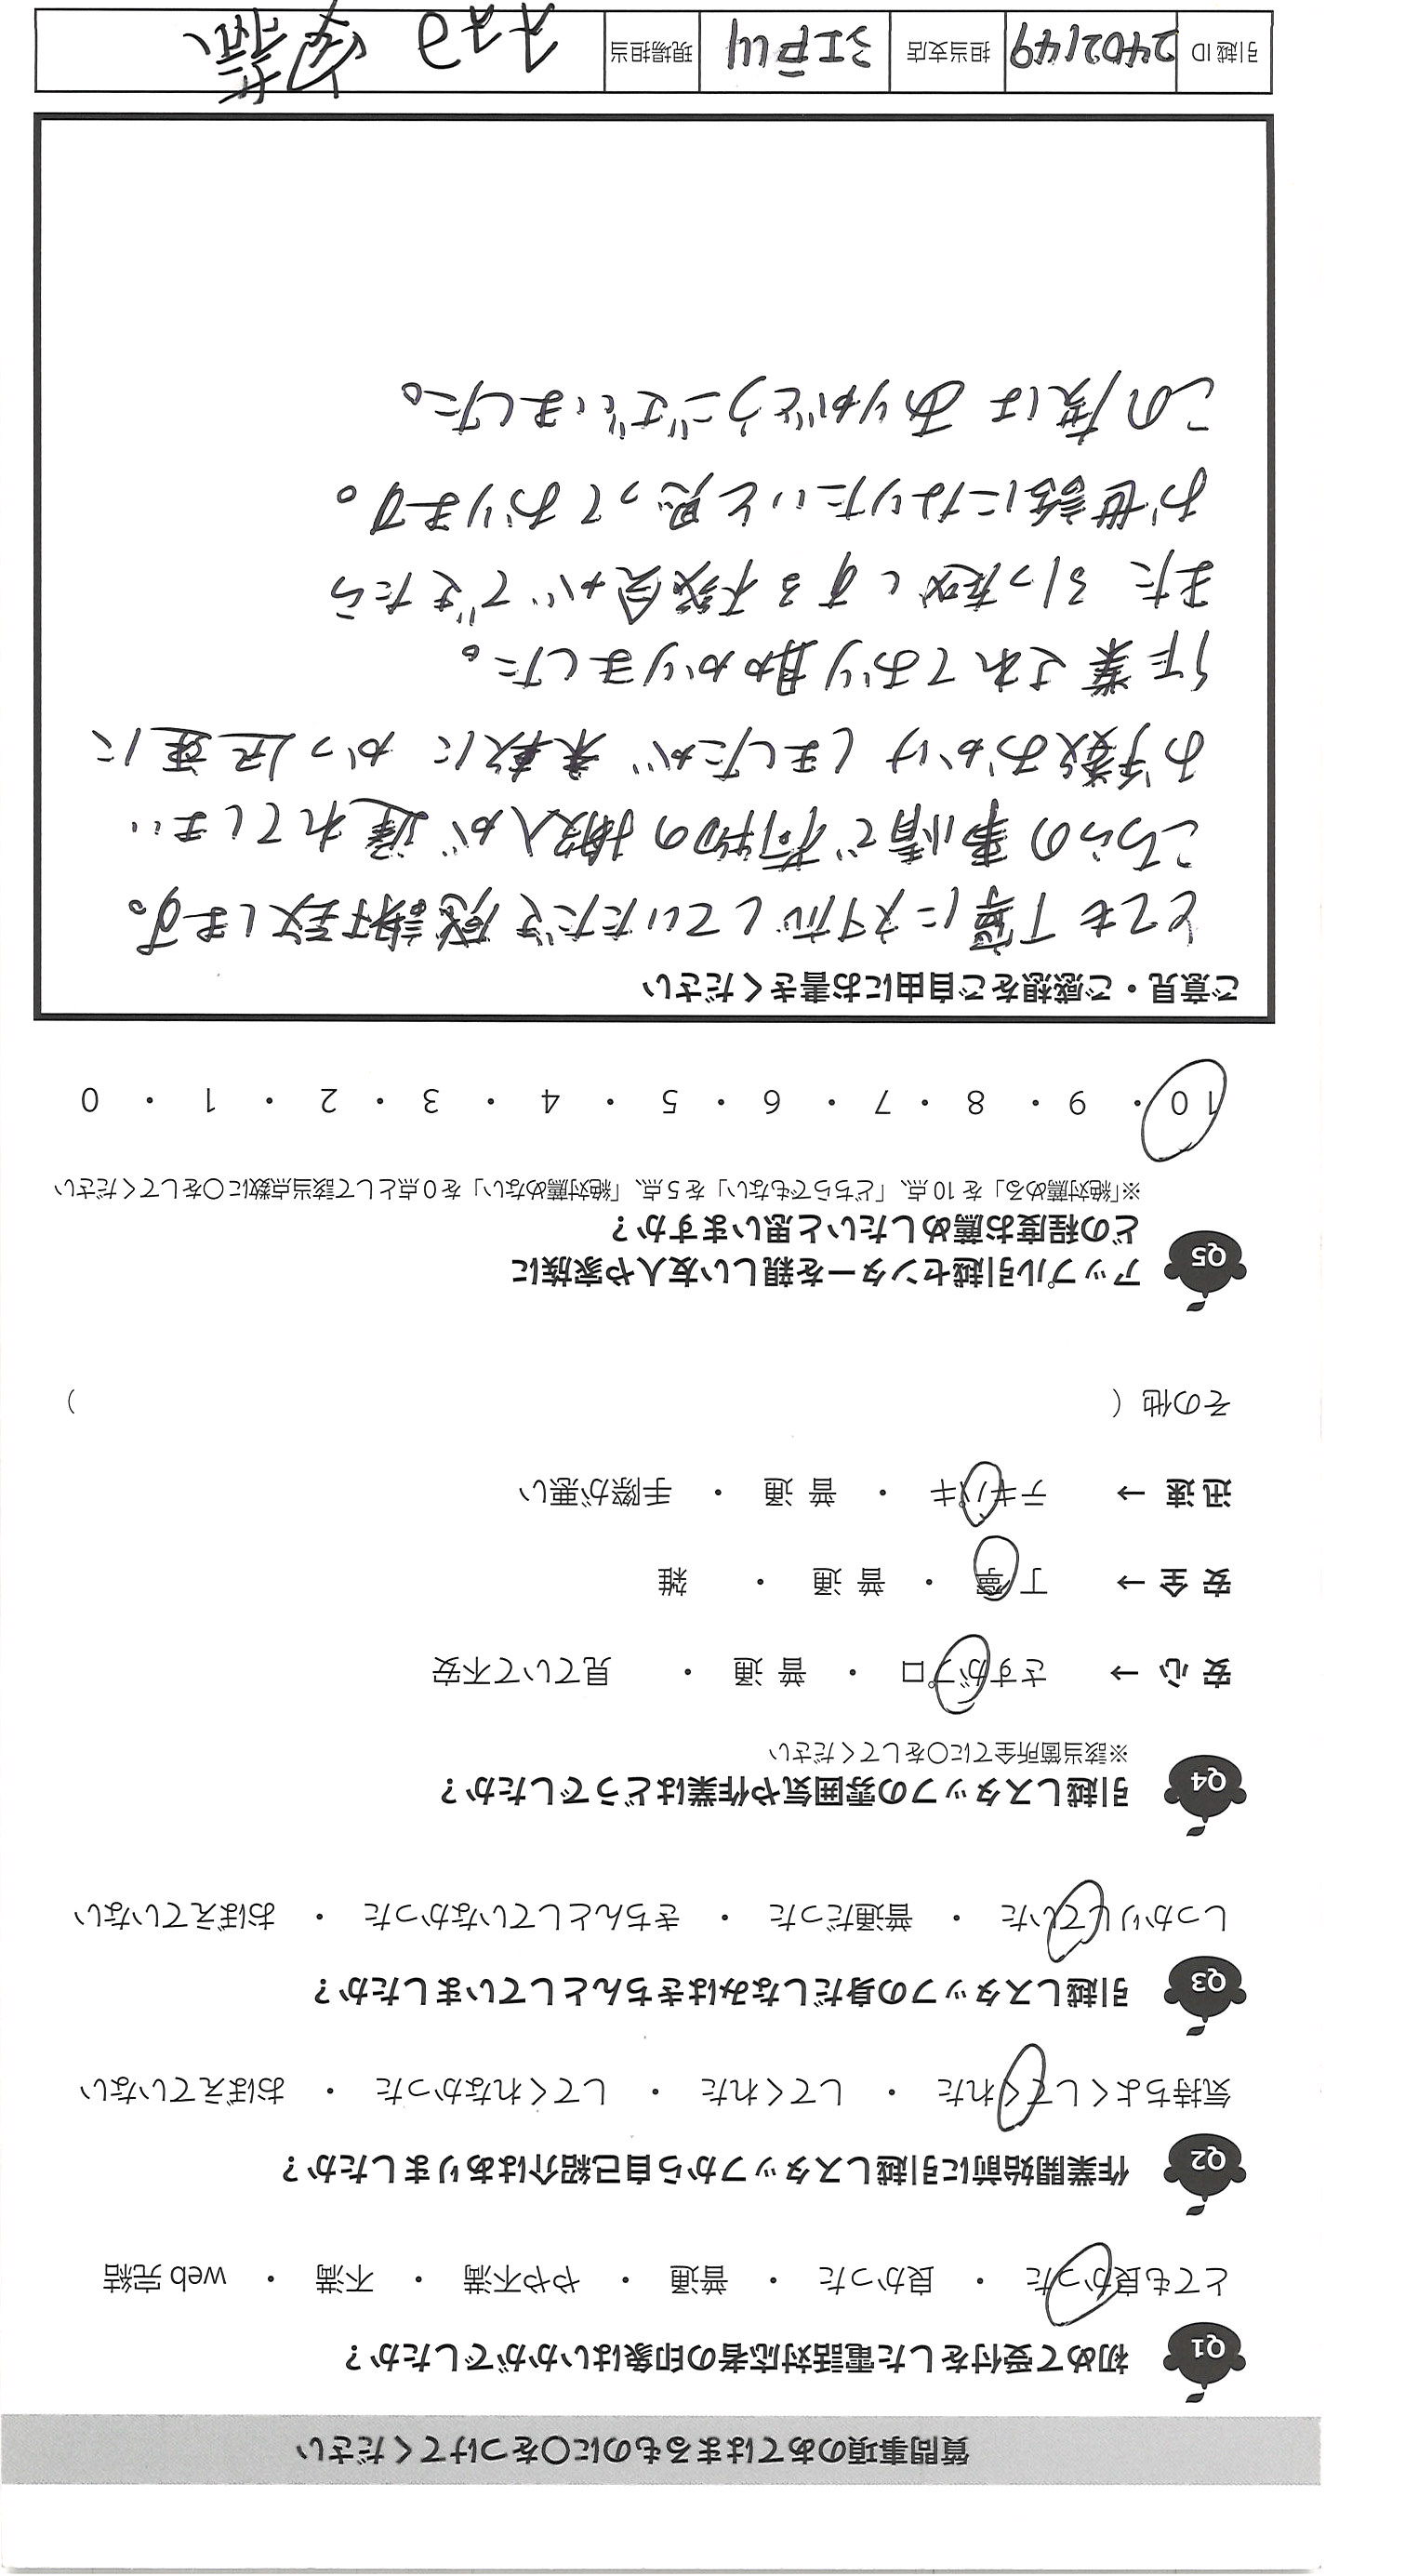 質問事項のあてはまるものに〇をつけてください
Q1 初めて受付をした電話対応者の印象はいかがでしたか？
とても良かった ・ 良かった ・ 普通 ・ やや不満 ・ 不満 ・ web 完結
Q2 作業開始前に引越しスタッフから自己紹介はありましたか？
気持ちよくしてくれた ・ してくれた ・ してくれなかった ・ おぼえていない
Q3 引越しスタッフの身だしなみはきちんとしていましたか？
しっかりしていた ・ 普通だった ・ きちんとしていなかった ・ おぼえていない
Q4 引越しスタッフの雰囲気や作業はどうでしたか？
※該当箇所全てに〇をしてください
安 心 → さすがプロ ・ 普 通 ・ 見ていて不安
安 全 → 丁 寧 ・ 普 通 ・ 雑
迅 速 → テキパキ ・ 普 通 ・ 手際が悪い
その他（ ）
Q5 アップル引越センターを親しい友人や家族に
どの程度お薦めしたいと思いますか？
※「絶対薦める」を 10 点、「どちらでもない」を 5 点、「絶対薦めない」を 0 点として該当点数に〇をしてください
10 ・ 9 ・ 8 ・ 7 ・ 6 ・ 5 ・ 4 ・ 3 ・ 2 ・ 1 ・ 0
ご意見・ご感想をご自由にお書きください
とても丁寧に対応していただき感謝致します。
こちらの事情で荷物の搬入が遅れてしまい
お手数おかけしましたが 柔軟に かつ迅速に
作業されており助かりました。
また 引っ越しする機会ができたら
お世話になりたいと思っております。
この度は ありがとうございました。
引越 ID 2402149 担当支店 江戸川 現場担当